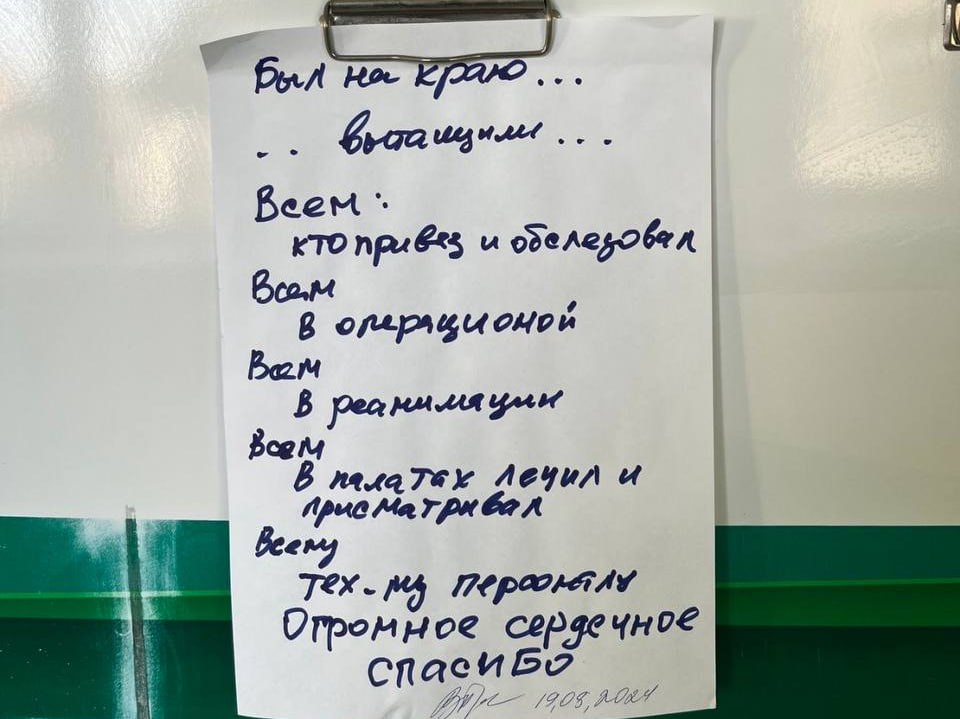 Был на краю...
.. вытащили ...
Всем:
кто привез и обследовал
Всем
в операционой
Всем
в реанимации
Всем
в палатах лечил и
присматривал
Всему
тех-му персоналу
Огромное сердечное
спасибо
19,08,2024